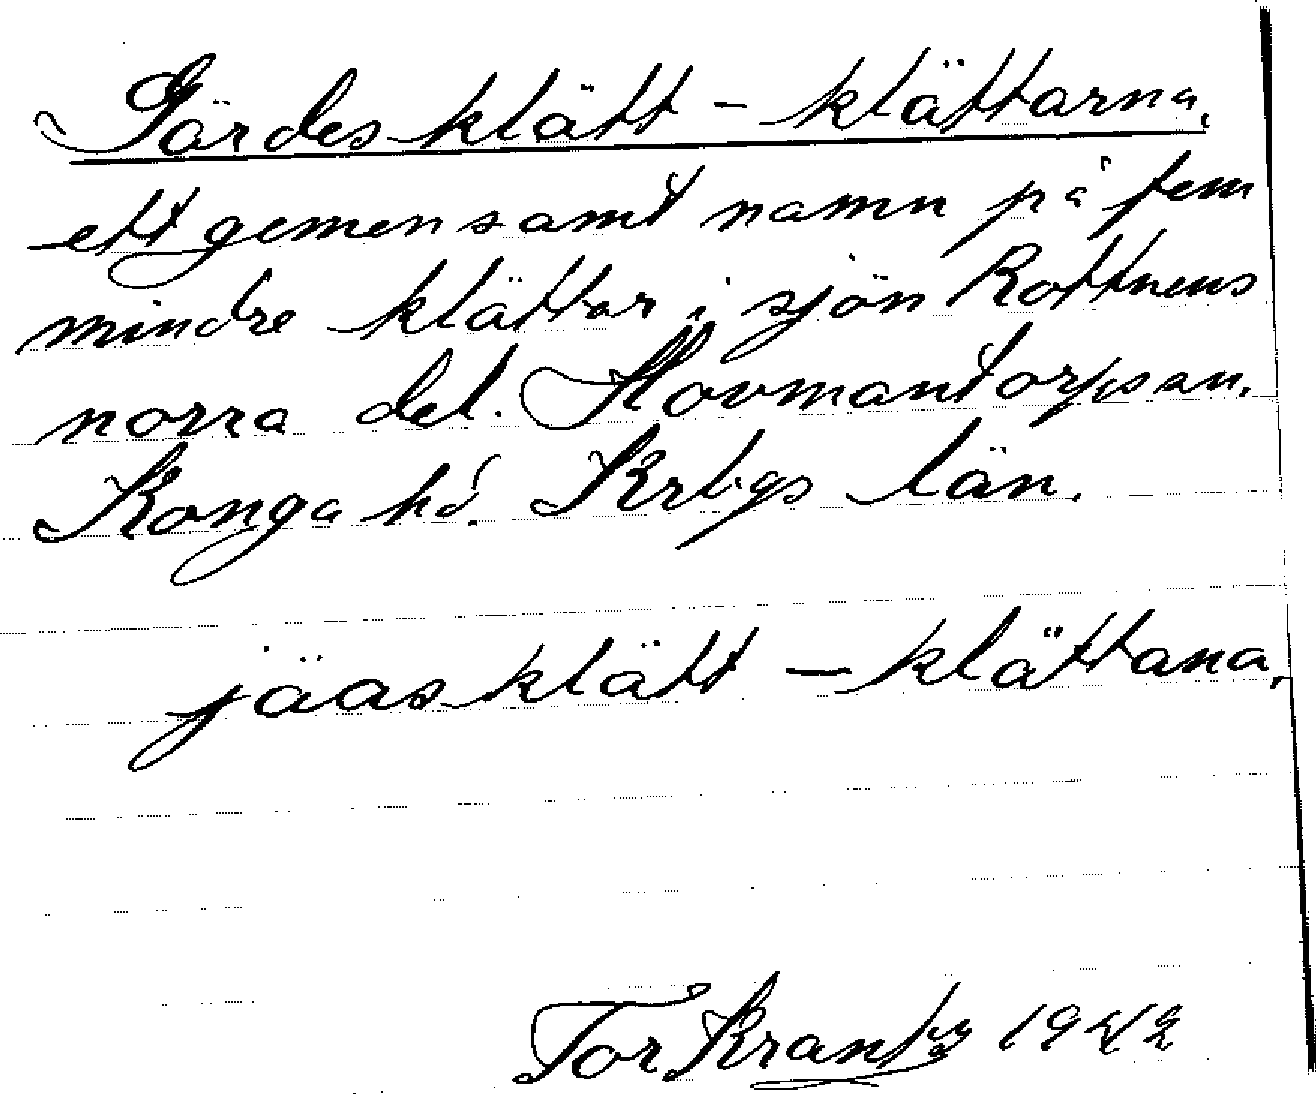 Gärdesklätt - klättarna.
ett gemensamt namn på fem
mindre klättar i sjön Rottnens
norra del. Hovmantorps sn.
Konga hd. Krbgs län.
jäasklätt - klättana.
Tor Krantz 1942